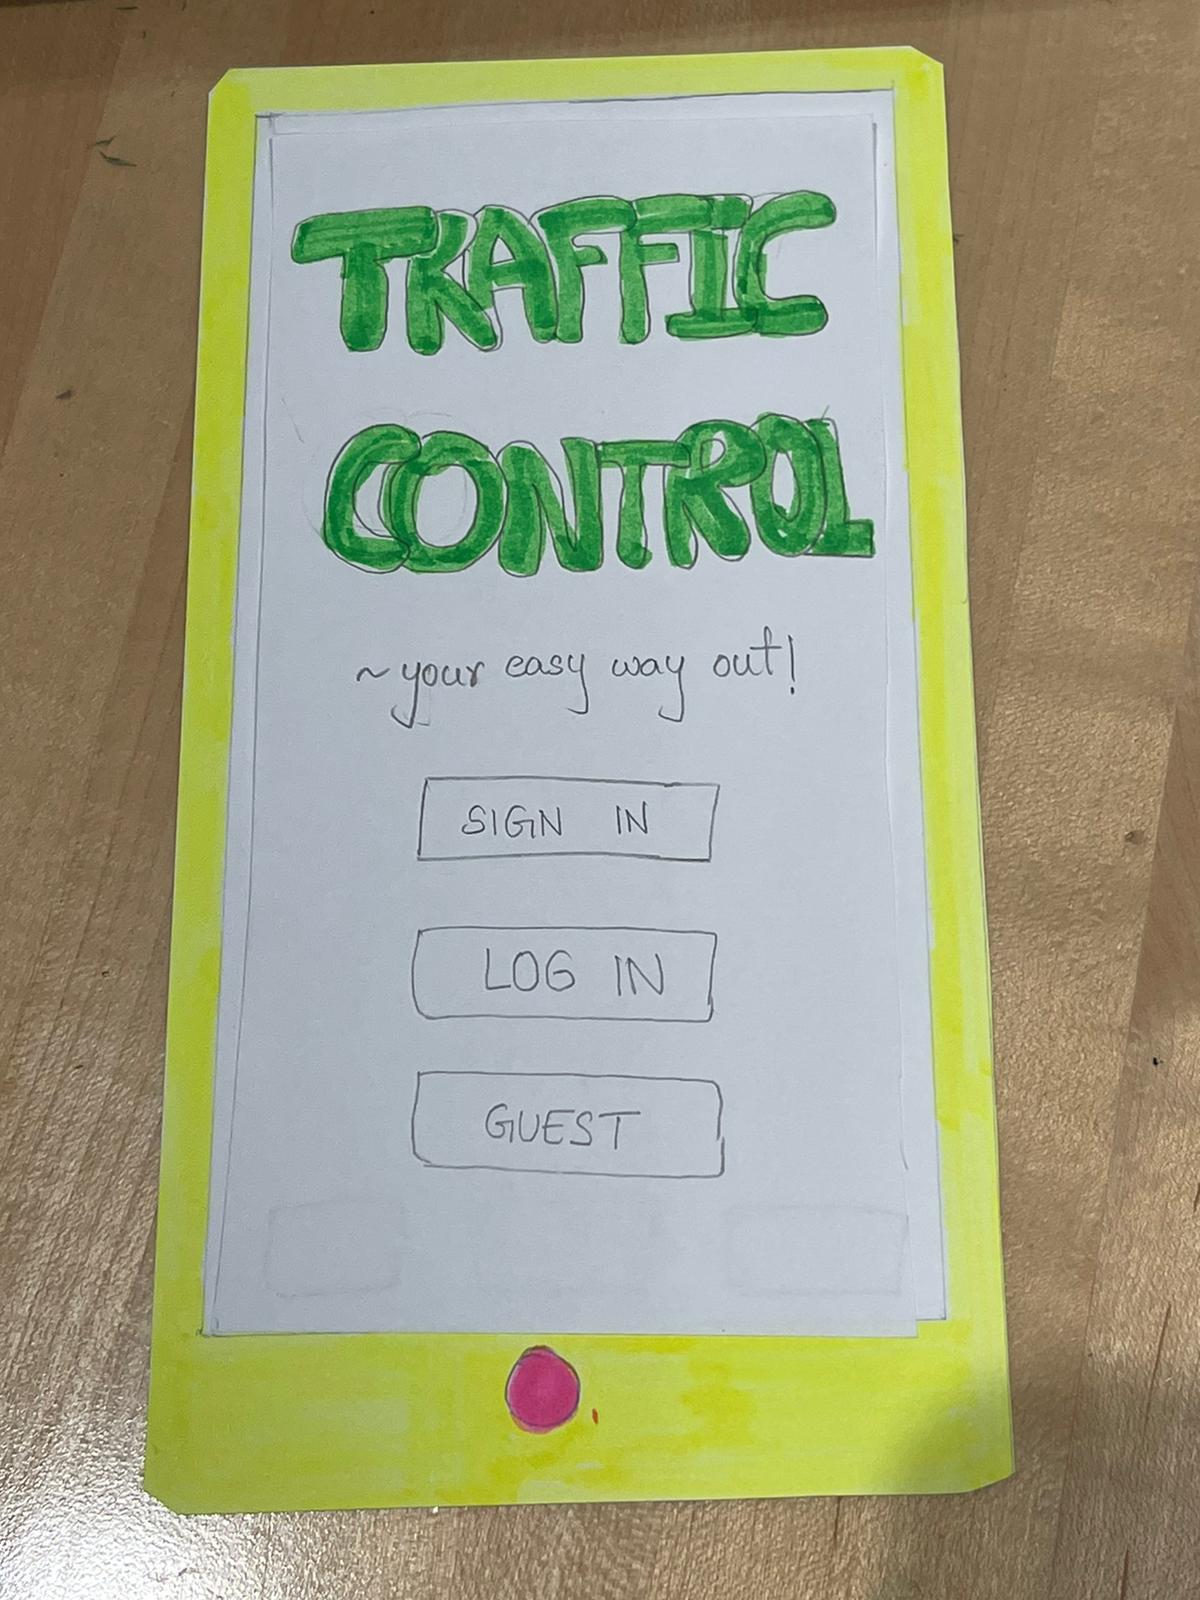 TRAFFIC
CONTROL
~your easy way out!
SIGN IN
LOG IN
GUEST